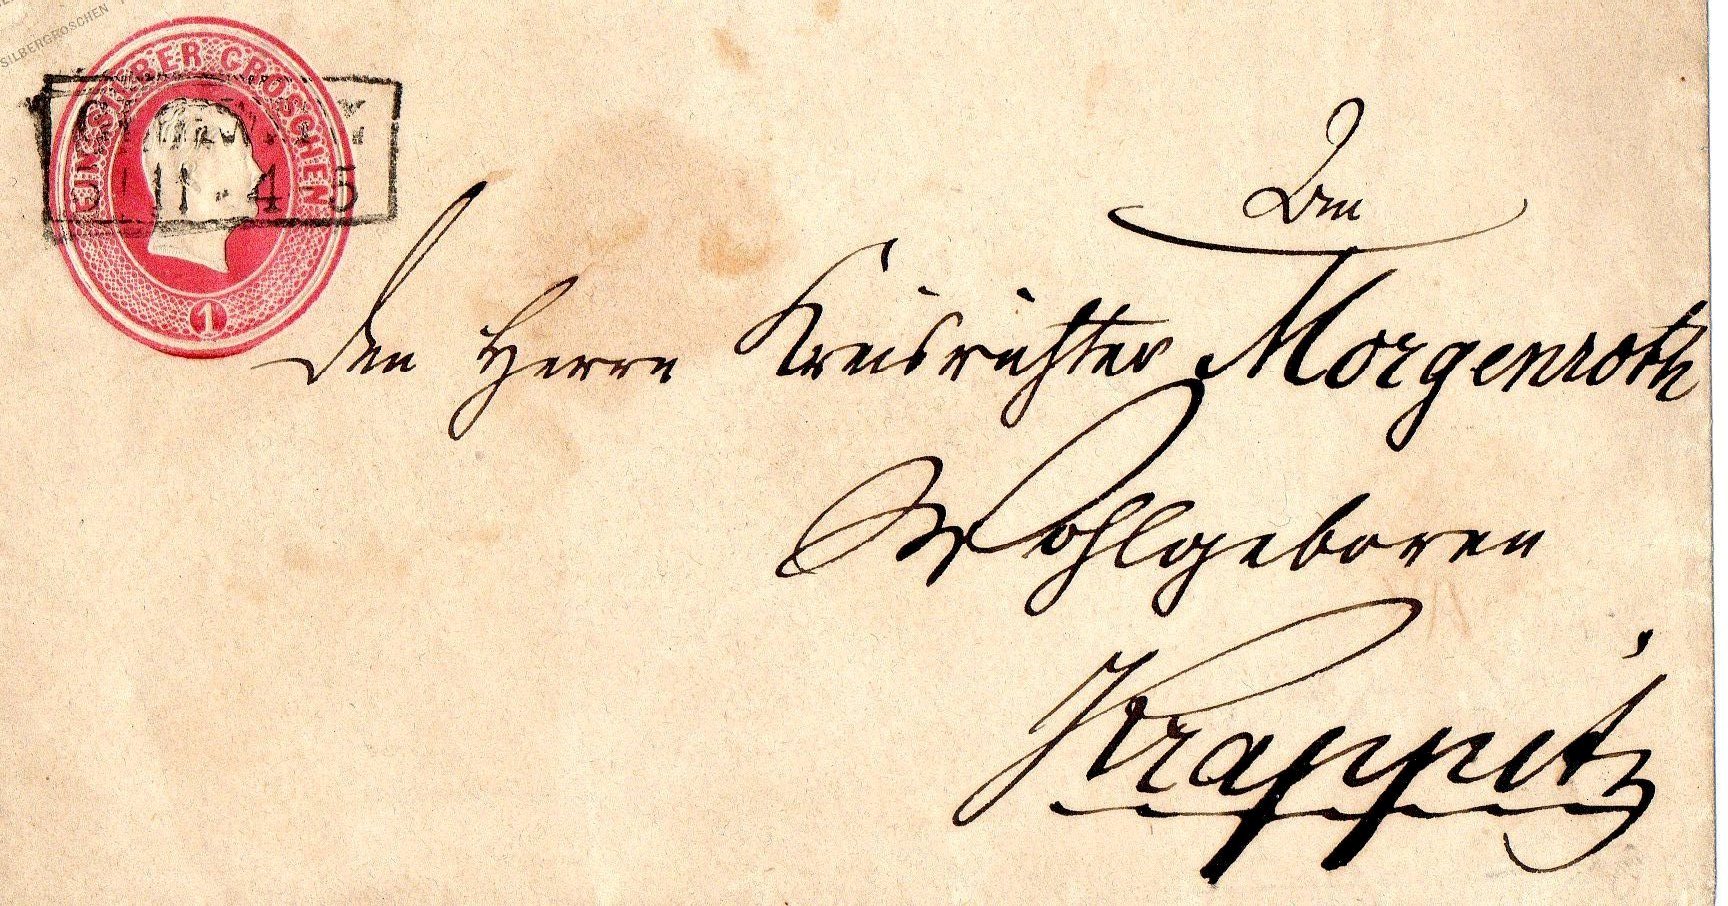 SILBERGROSCHEN
EIN SILBER GROSCHEN
11 4 5
1
An
den Herrn Kreisrichter Morgenroth
Wohlgeboren
Krappitz